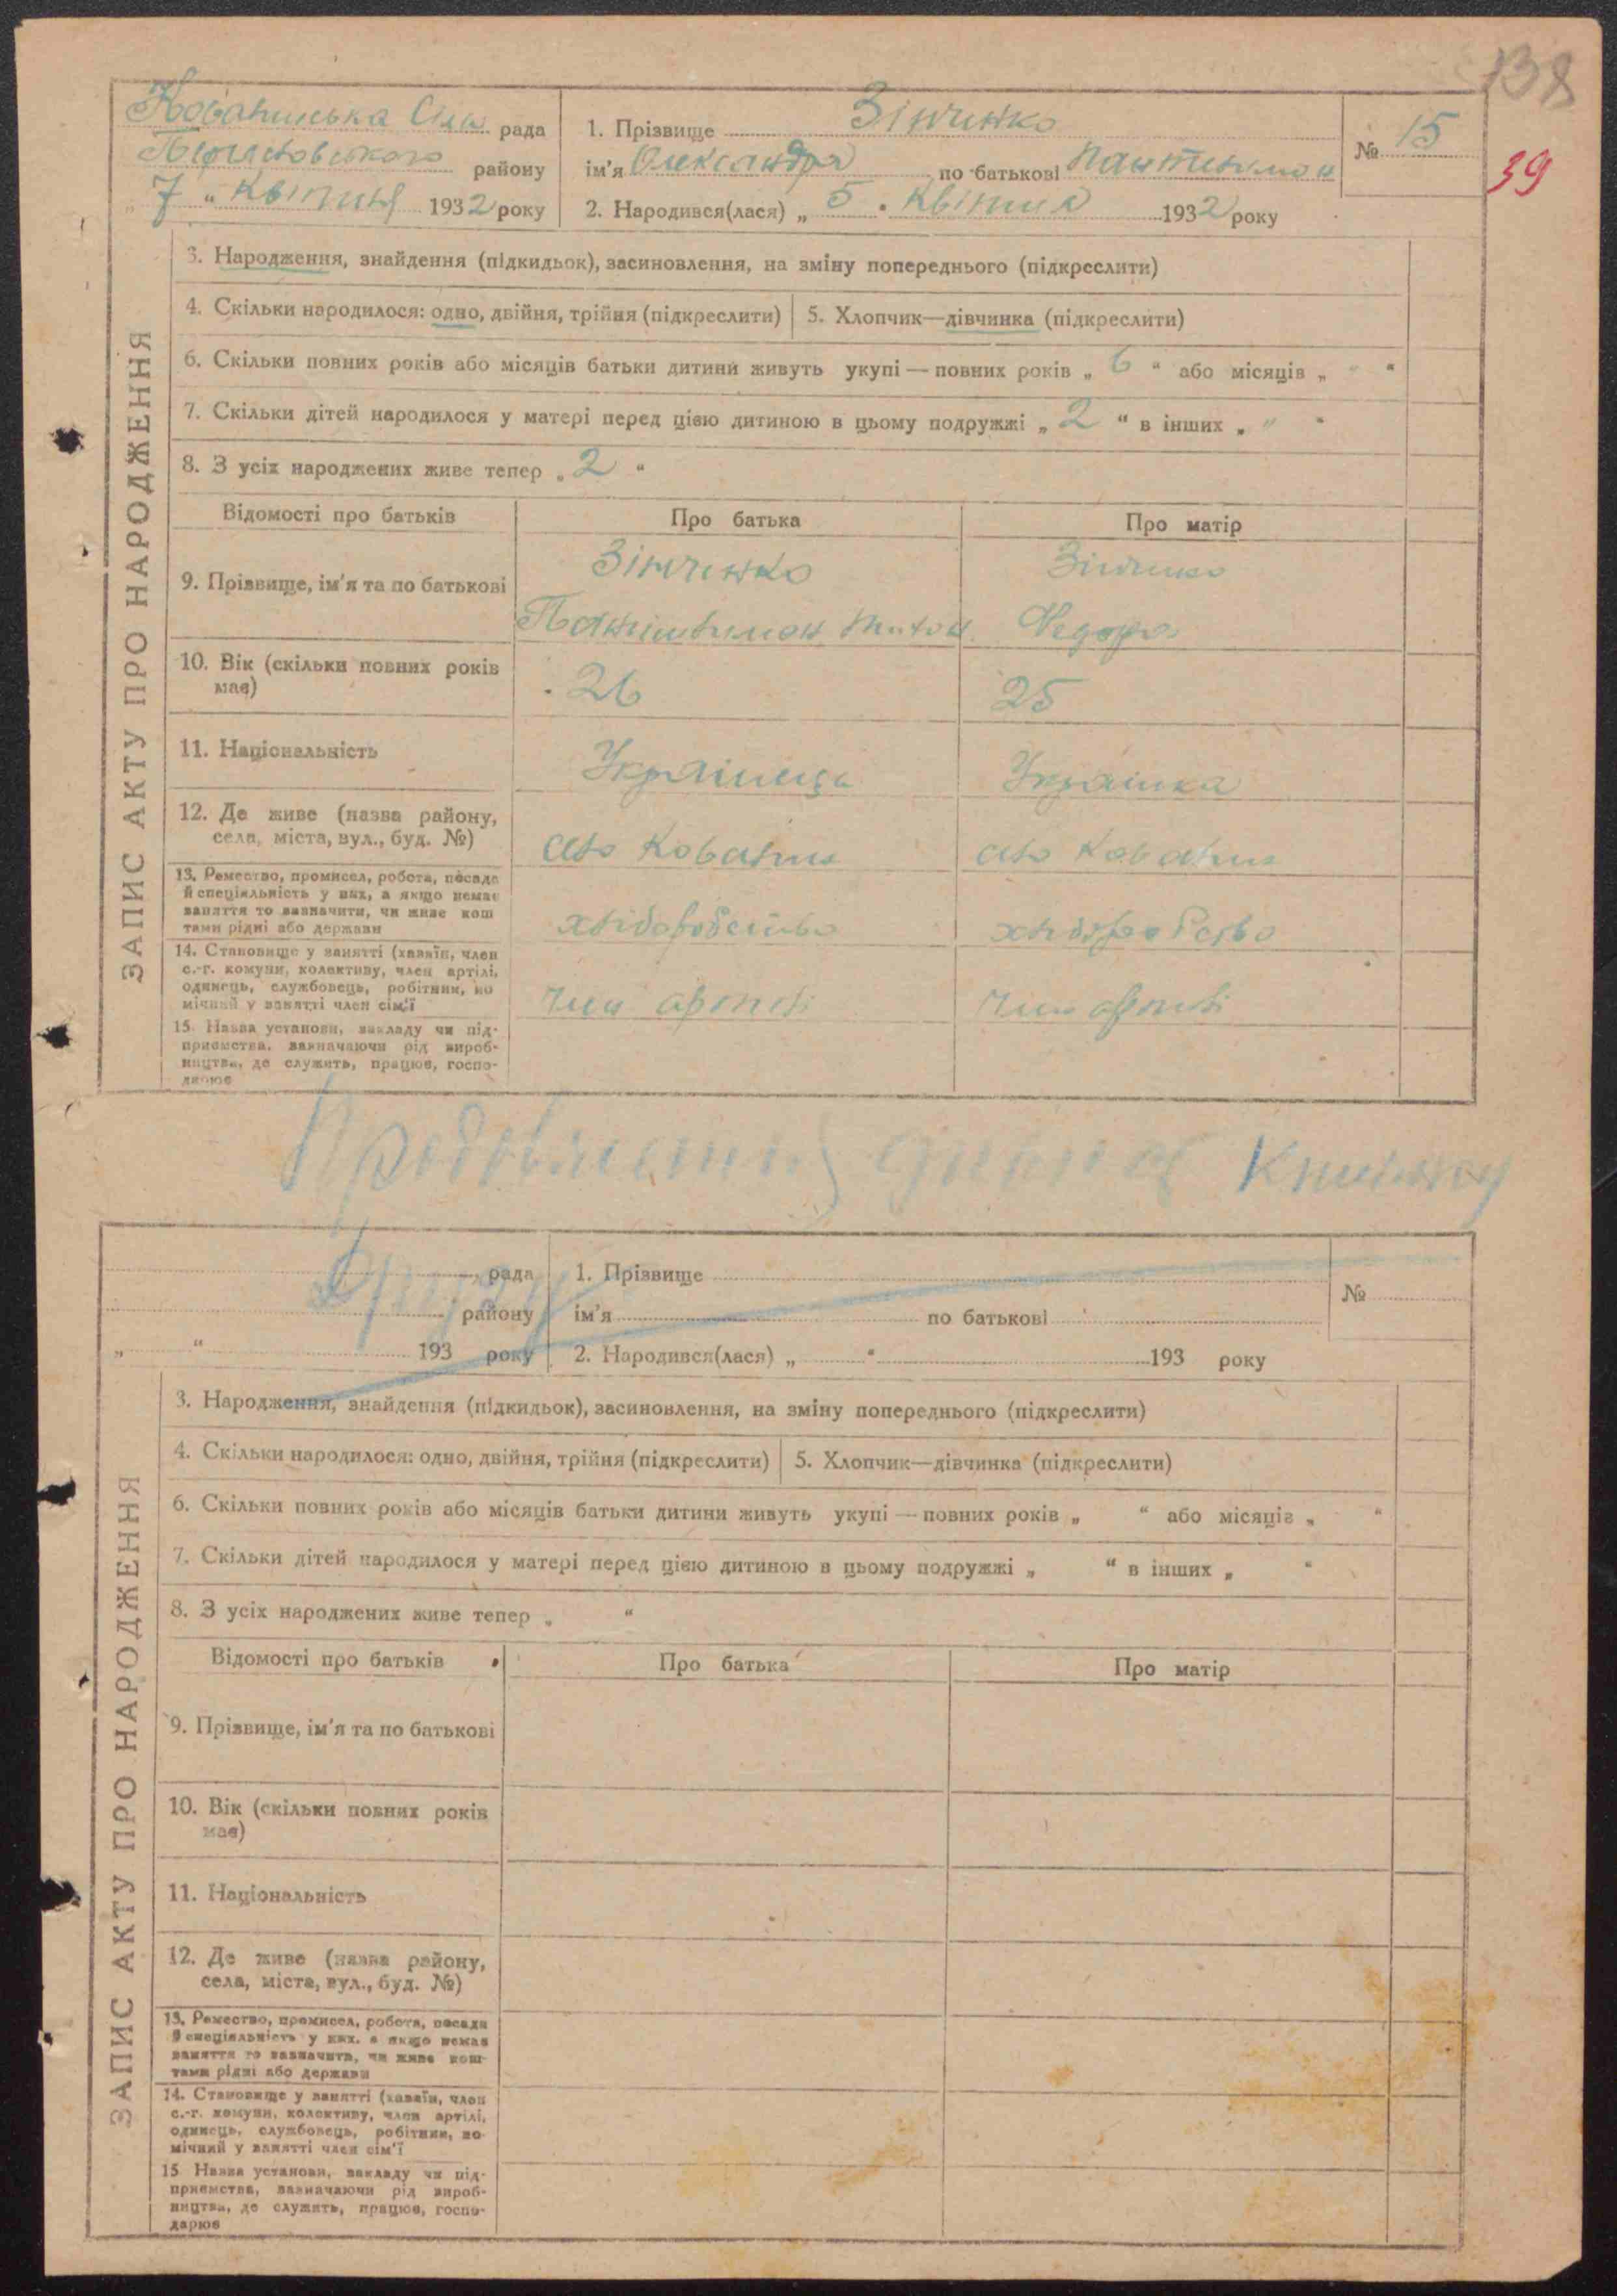 138
39
Кованська Сіль рада
району
„ 7 “ Квітня 1932 року
1. Прізвище Зінченко
ім'я Олександра по батькові Пантелимон
2. Народився(лася) „ 5 “ Квітня 1932 року
№ 15
ЗАПИС АКТУ ПРО НАРОДЖЕННЯ
3. Народження, знайдення (підкидьок), засиновлення, на зміну попереднього (підкреслити)
4. Скільки народилося: одно, двійня, трійня (підкреслити) 5. Хлопчик—дівчинка (підкреслити)
6. Скільки повних років або місяців батьки дитини живуть укупі — повних років „ 6 “ або місяців „ “ “
7. Скільки дітей народилося у матері перед цією дитиною в цьому подружжі „ 2 “ в інших „ “ “
8. З усіх народжених живе тепер „ 2 “
Відомості про батьків Про батька Про матір
9. Прізвище, ім'я та по батькові
Зінченко
Зінченко
Федора
10. Вік (скільки повних років має)
26
25
11. Національність
Українець
Українка
12. Де живе (назва району,
села, міста, вул., буд. №)
село Кованин
село Кованин
13. Ремество, промисел, робота, посада
й спеціяльність у них, а якщо немає
заняття то зазначити, чи живе кош
тами рідні або держави
хліборобство
хліборобство
14. Становище у занятті (хазяїн, член
с.-г. комуни, колективу, член артілі,
одинець, службовець, робітник, по
мічний у занятті член сім'ї
член артілі
член артілі
15. Назва установи, закладу чи під-
приємства, зазначаючи рід вироб-
ництва, де служить, працює, госпо-
дарює
Продовжено дивись книжку
другу
рада
району
„ “ 193 року
1. Прізвище
ім'я по батькові
2. Народився(лася) „ “ 193 року
№
ЗАПИС АКТУ ПРО НАРОДЖЕННЯ
3. Народження, знайдення (підкидьок), засиновлення, на зміну попереднього (підкреслити)
4. Скільки народилося: одно, двійня, трійня (підкреслити) 5. Хлопчик—дівчинка (підкреслити)
6. Скільки повних років або місяців батьки дитини живуть укупі — повних років „ “ або місяців „ “
7. Скільки дітей народилося у матері перед цією дитиною в цьому подружжі „ “ в інших „ “
8. З усіх народжених живе тепер „ “
Відомості про батьків Про батька Про матір
9. Прізвище, ім'я та по батькові
10. Вік (скільки повних років
має)
11. Національність
12. Де живе (назва району,
села, міста, вул., буд. №)
13. Ремество, промисел, робота, посада
й спеціяльність у них, а якщо немає
заняття то зазначити, чи живе кош-
тами рідні або держави
14. Становище у занятті (хазяїн, член
с.-г. комуни, колективу, член артілі,
одинець, службовець, робітник, по
мічний у занятті член сім'ї
15 Назва установи, закладу чи під-
приємства, зазначаючи рід вироб-
ництва, де служить, працює, госпо-
дарює